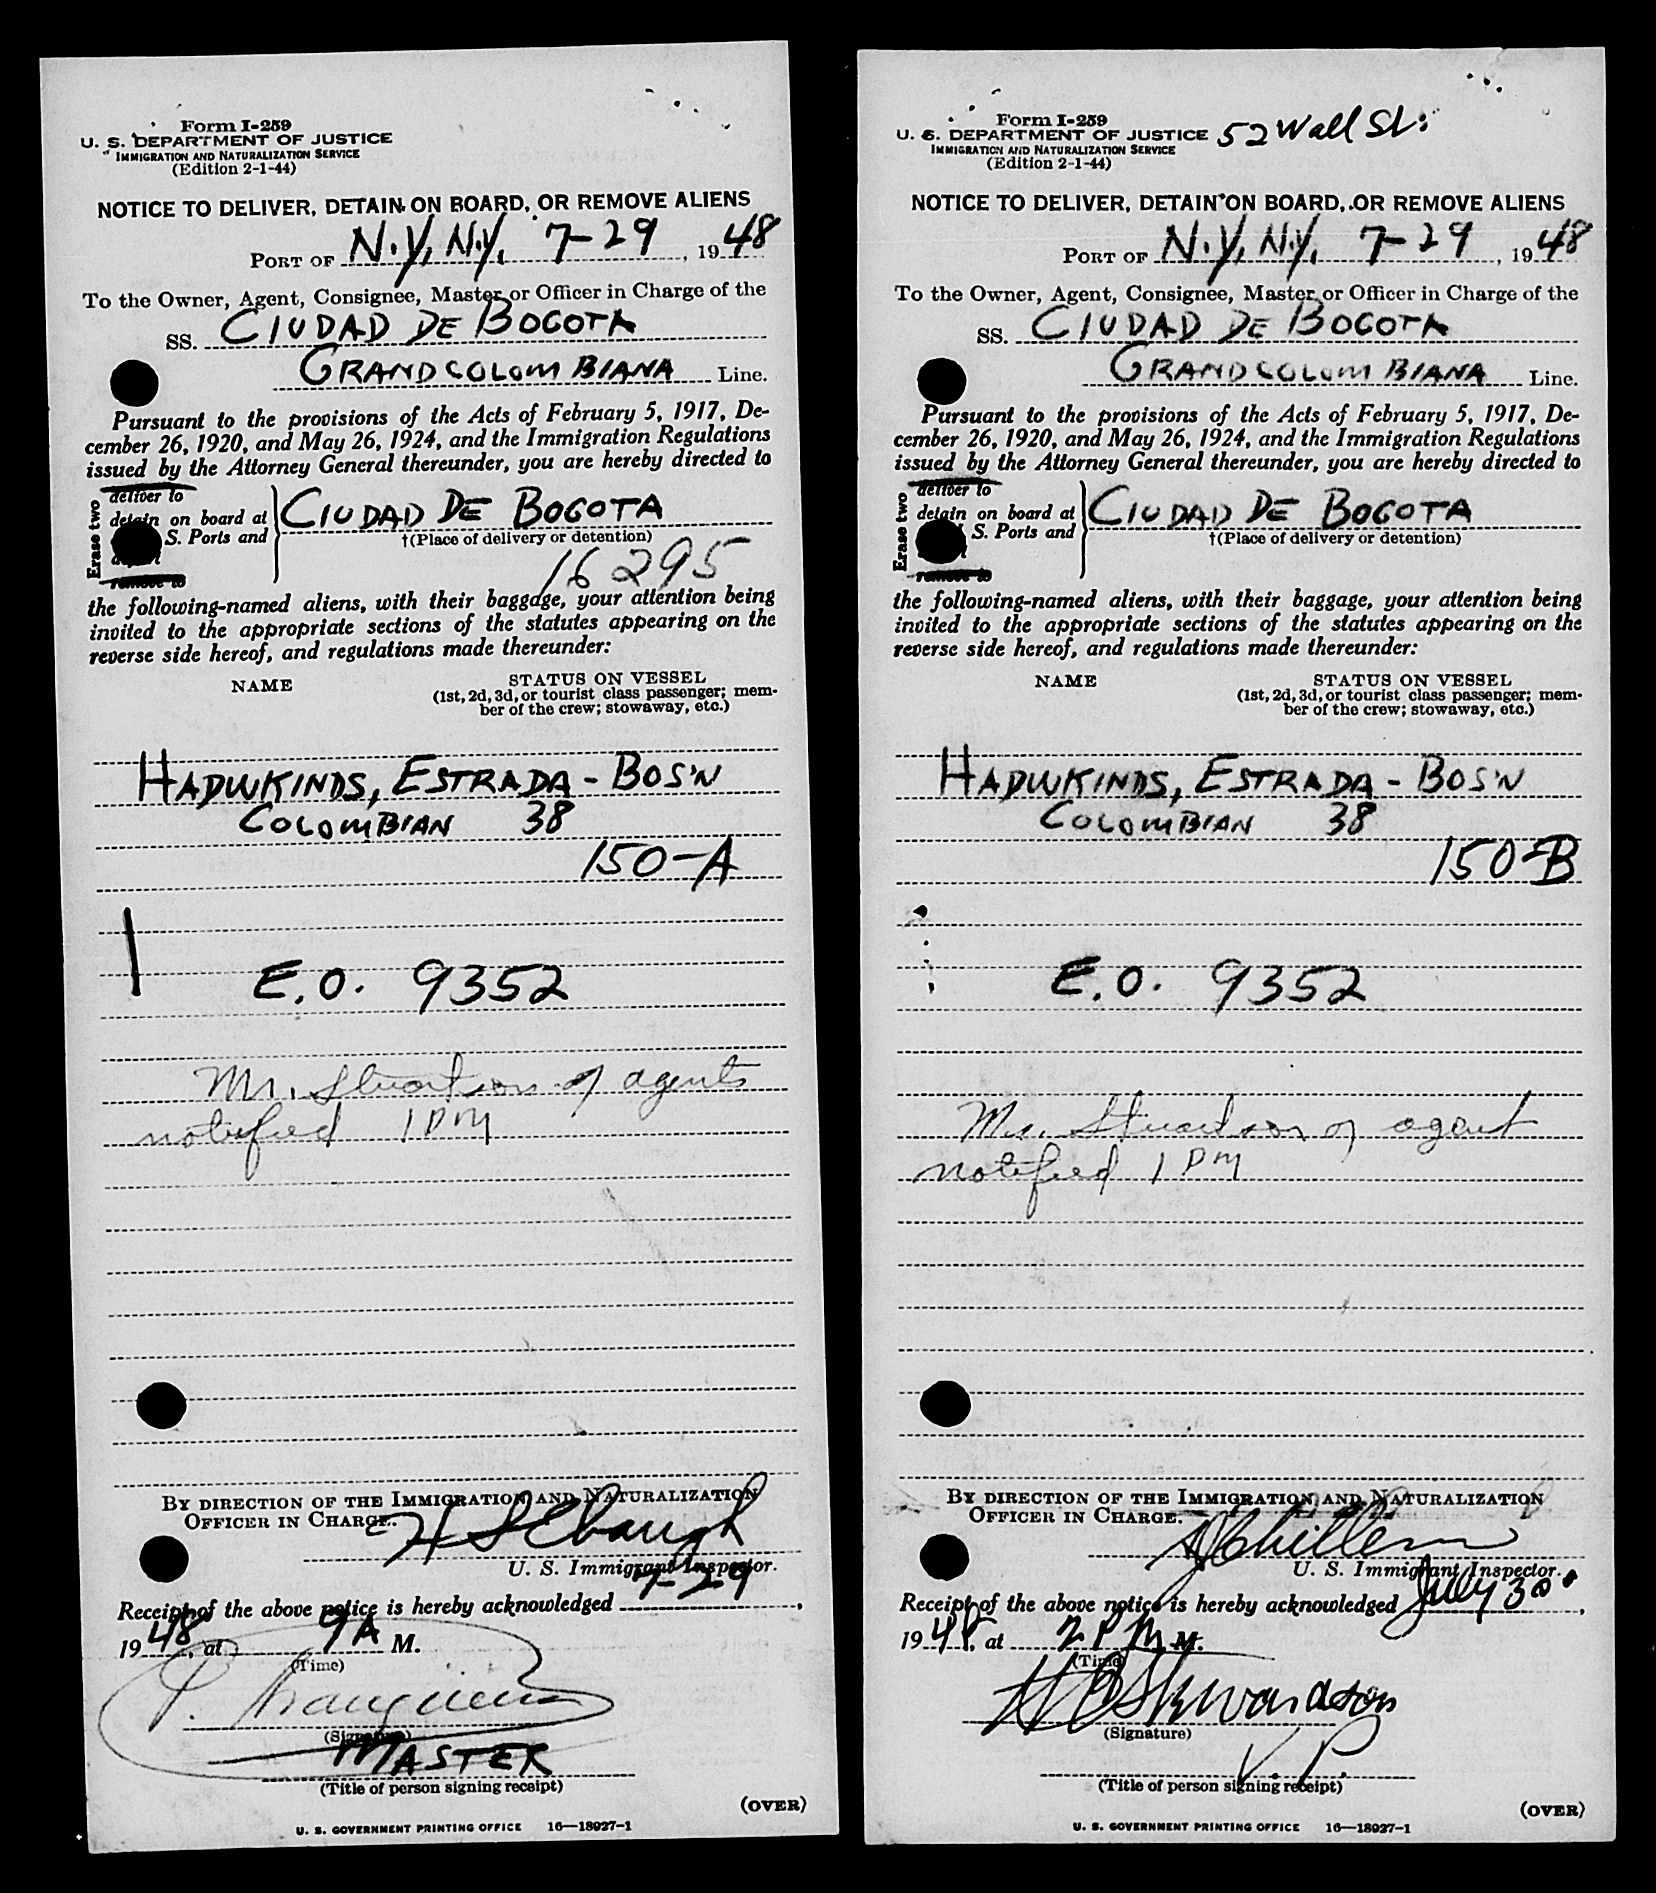 Form I-259
U. S. DEPARTMENT OF JUSTICE
IMMIGRATION AND NATURALIZATION SERVICE
(Edition 2-1-44)
NOTICE TO DELIVER, DETAIN ON BOARD, OR REMOVE ALIENS
PORT OF N.Y, N.Y. 7-29, 1948
To the Owner, Agent, Consignee, Master or Officer in Charge of the
SS. CIUDAD DE BOGOTA
GRANDCOLOMBIANA Line.
Pursuant to the provisions of the Acts of February 5, 1917, De-
cember 26, 1920, and May 26, 1924, and the Immigration Regulations
issued by the Attorney General thereunder, you are hereby directed to
Erase two
deliver to
detain on board at
S. Ports and
remove to
CIUDAD DE BOGOTA
†(Place of delivery or detention)
16295
the following-named aliens, with their baggage, your attention being
invited to the appropriate sections of the statutes appearing on the
reverse side hereof, and regulations made thereunder:
NAME
STATUS ON VESSEL
(1st, 2d, 3d, or tourist class passenger; mem-
ber of the crew; stowaway, etc.)
HADWKINDS, ESTRADA - BOS'N
COLOMBIAN 38
150-A
E.O. 9352
Mr. Stuartson of agents
notified 1 PM
BY DIRECTION OF THE IMMIGRATION AND NATURALIZATION
OFFICER IN CHARGE.
U. S. Immigrant Inspector.
Receipt of the above notice is hereby acknowledged 7-29,
1948, at 9 A M.
(Time)
(Signature)
MASTER
(Title of person signing receipt)
(OVER)
U. S. GOVERNMENT PRINTING OFFICE 16—18927-1
Form I-259
U. S. DEPARTMENT OF JUSTICE 52 Wall St.
IMMIGRATION AND NATURALIZATION SERVICE
(Edition 2-1-44)
NOTICE TO DELIVER, DETAIN ON BOARD, OR REMOVE ALIENS
PORT OF N.Y, N.Y. 7-29, 1948
To the Owner, Agent, Consignee, Master or Officer in Charge of the
SS. CIUDAD DE BOGOTA
GRANDCOLOMBIANA Line.
Pursuant to the provisions of the Acts of February 5, 1917, De-
cember 26, 1920, and May 26, 1924, and the Immigration Regulations
issued by the Attorney General thereunder, you are hereby directed to
Erase two
deliver to
detain on board at
S. Ports and
remove to
CIUDAD DE BOGOTA
†(Place of delivery or detention)
the following-named aliens, with their baggage, your attention being
invited to the appropriate sections of the statutes appearing on the
reverse side hereof, and regulations made thereunder:
NAME
STATUS ON VESSEL
(1st, 2d, 3d, or tourist class passenger; mem-
ber of the crew; stowaway, etc.)
HADWKINDS, ESTRADA - BOS'N
COLOMBIAN 38
150-B
E.O. 9352
Mr. Stuartson of agent
notified 1 PM
BY DIRECTION OF THE IMMIGRATION AND NATURALIZATION
OFFICER IN CHARGE.
U. S. Immigrant Inspector.
Receipt of the above notice is hereby acknowledged July 30,
1948, at 2 PM M.
(Time)
Stewardson
(Signature)
V.P.
(Title of person signing receipt)
(OVER)
U. S. GOVERNMENT PRINTING OFFICE 16—18927-1